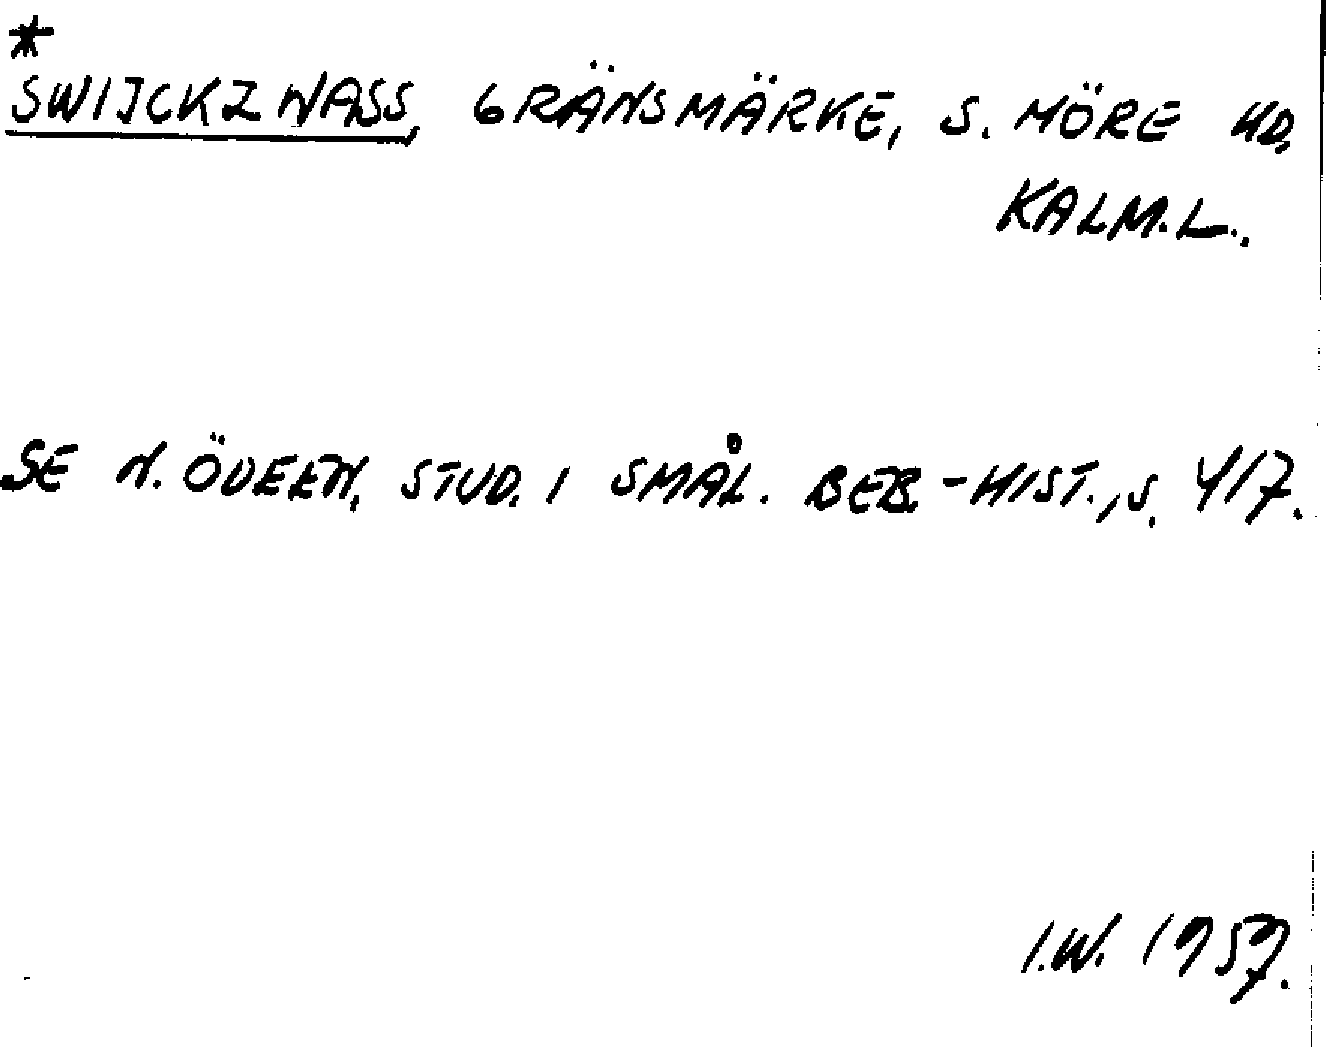 *
SWIJCKZ NASS, GRÄNSMÄRKE, S. MÖRE HD.
KALM.L..
SE N. ÖDEEN, STUD. I SMÅL. BEB.-HIST., S. 417.
I.W. 1957.